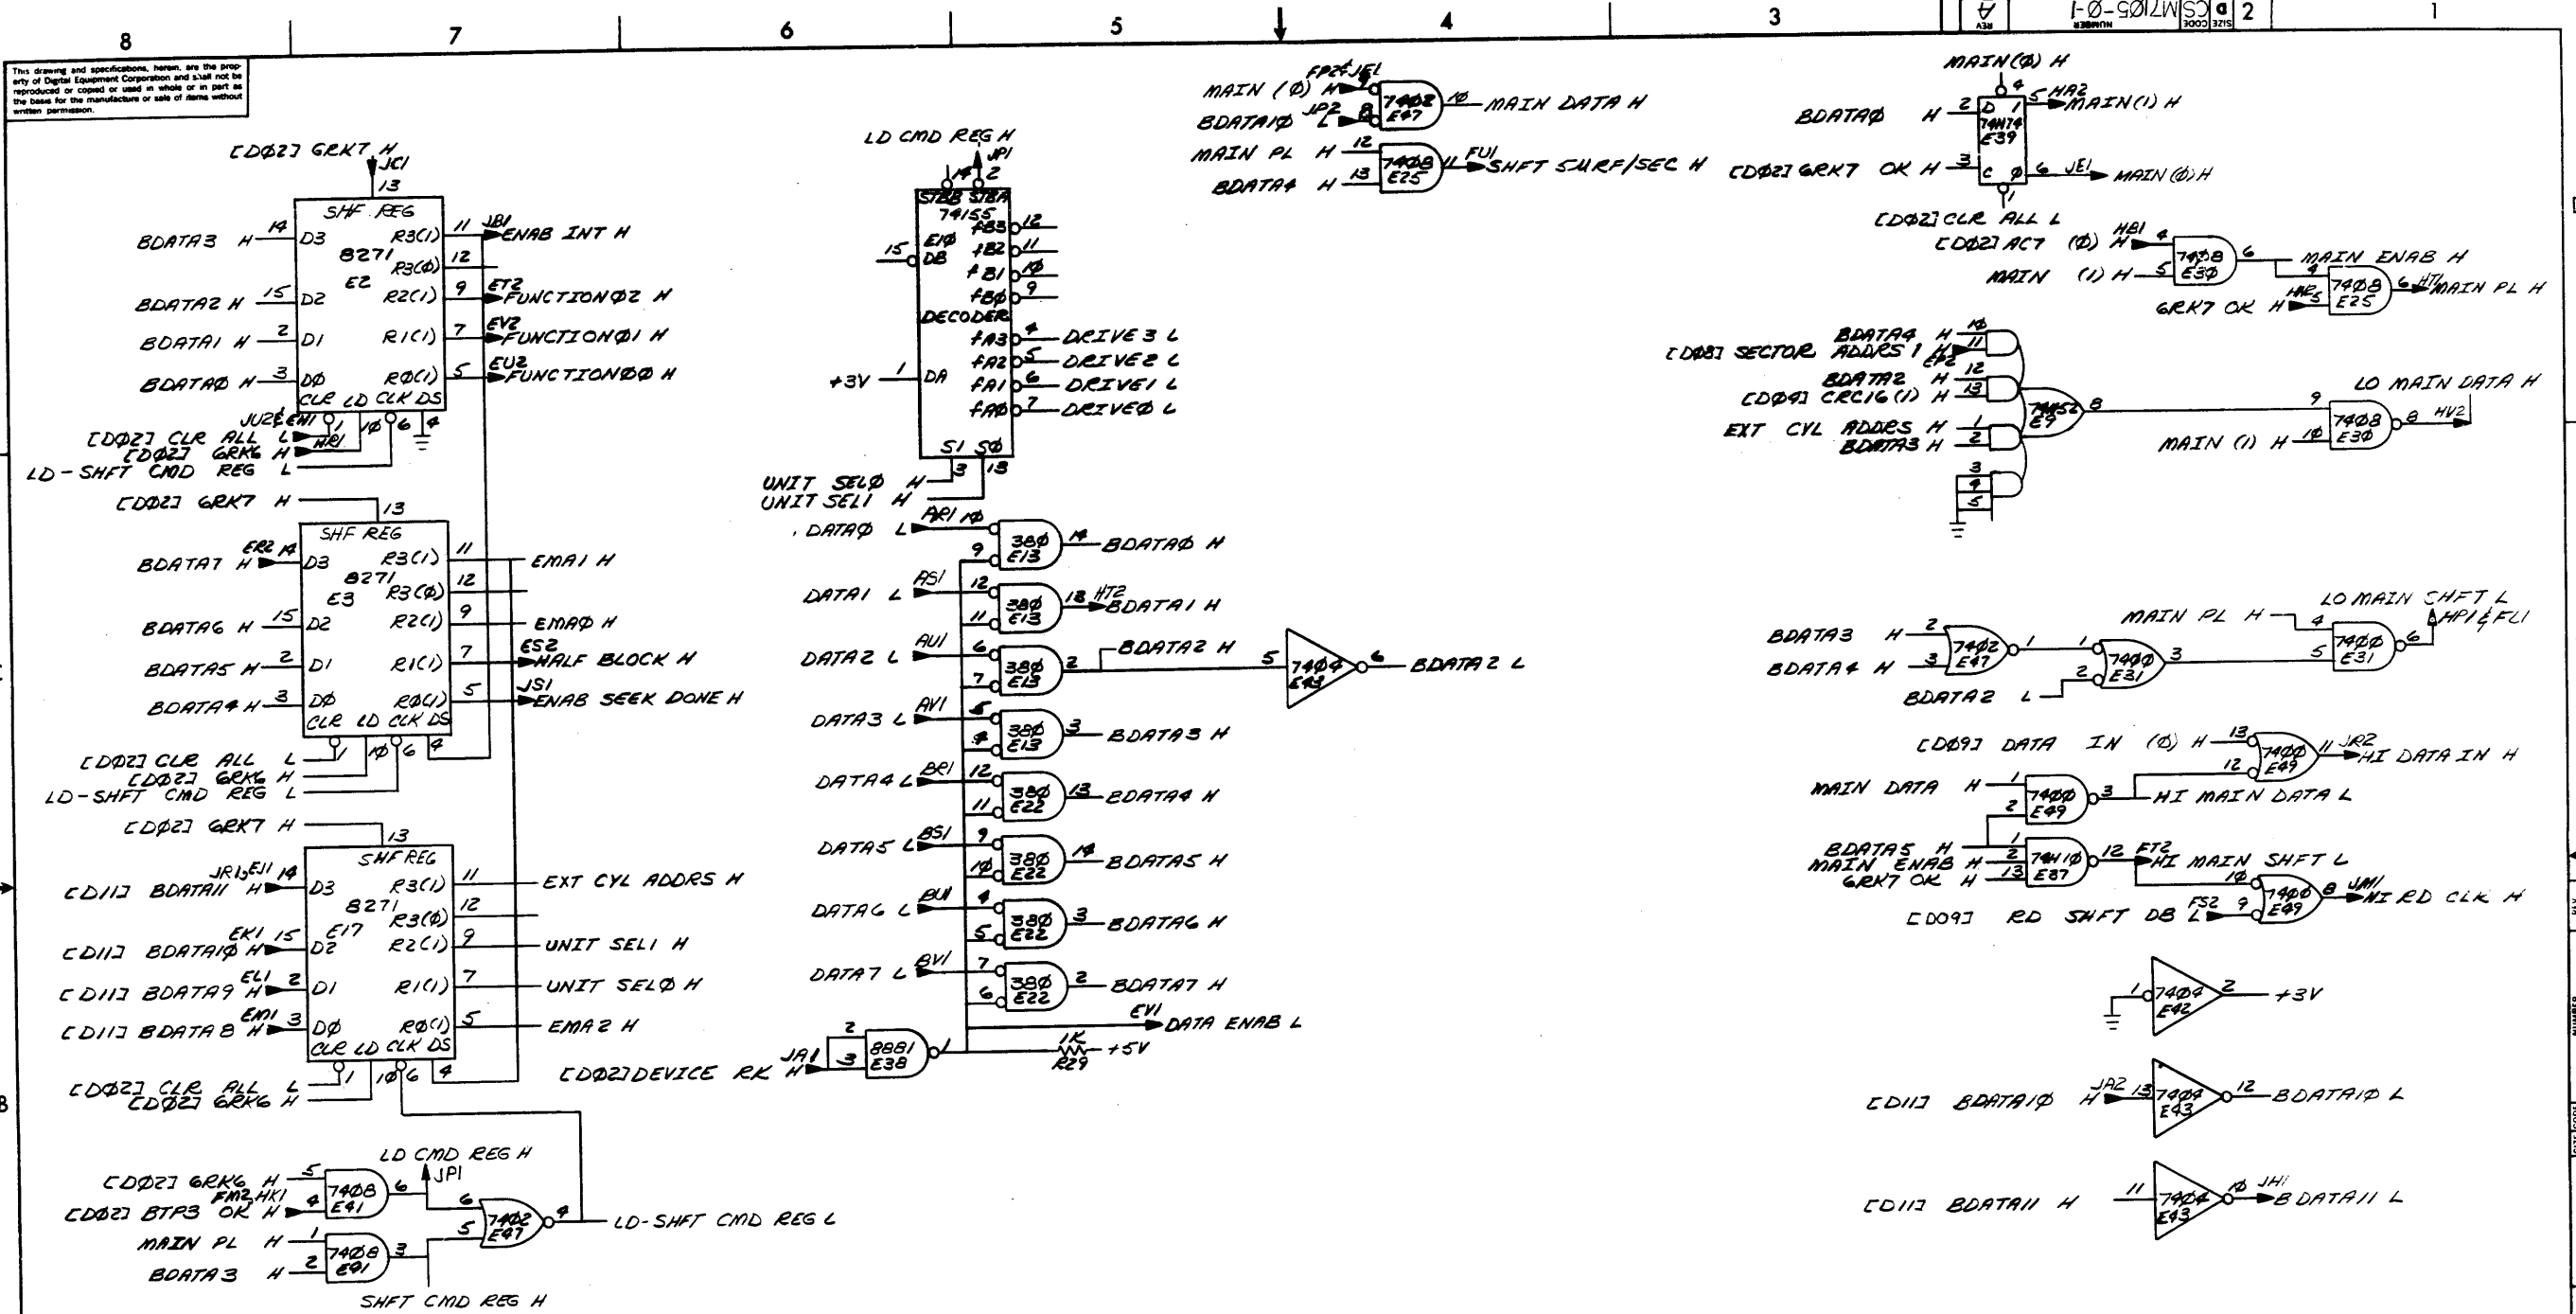 8 7 6 5 4 3 2 1
REV A
NUMBER M7105-Ø-1
SIZE D CODE CS
This drawing and specifications, herein, are the prop-
erty of Digital Equipment Corporation and shall not be
reproduced or copied or used in whole or in part as
the basis for the manufacture or sale of items without
written permission.
[DØ2] GRK7 H
JC1
13
SHF REG
8271
E2
BDATA3 H 14 D3 R3(1) 11 JB1 ENAB INT H
R3(Ø) 12
BDATA2 H 15 D2 R2(1) 9 ET2 FUNCTIONØ2 H
BDATA1 H 2 D1 R1(1) 7 EV2 FUNCTIONØ1 H
BDATAØ H 3 DØ RØ(1) 5 EU2 FUNCTIONØØ H
CLR LD CLK DS
1 1Ø 6 4
JU2&EH1
[DØ2] CLR ALL L
[DØ2] GRK6 H HR1
LD-SHFT CMD REG L
[DØ2] GRK7 H
13
SHF REG
8271
E3
BDATA7 H ER2 14 D3 R3(1) 11 EMA1 H
R3(Ø) 12
BDATA6 H 15 D2 R2(1) 9 EMAØ H
BDATA5 H 2 D1 R1(1) 7 ES2 HALF BLOCK H
BDATA4 H 3 DØ RØ(1) 5 JS1 ENAB SEEK DONE H
CLR LD CLK DS
1 1Ø 6 4
[DØ2] CLR ALL L
[DØ2] GRK6 H
LD-SHFT CMD REG L
[DØ2] GRK7 H
13
SHF REG
8271
E17
[D11] BDATA11 H JR1,EJ1 14 D3 R3(1) 11 EXT CYL ADDRS H
R3(Ø) 12
[D11] BDATA1Ø H EK1 15 D2 R2(1) 9 UNIT SEL1 H
[D11] BDATA9 H EL1 2 D1 R1(1) 7 UNIT SELØ H
[D11] BDATA8 H EM1 3 DØ RØ(1) 5 EMA2 H
CLR LD CLK DS
1 1Ø 6 4
[DØ2] CLR ALL L
[DØ2] GRK6 H
LD CMD REG H
JP1
[DØ2] GRK6 H 5
FM2,HK1
[DØ2] BTP3 OK H 4
7408 E41 6
MAIN PL H 1
BDATA3 H 2
7408 E41 3
6 5 7402 E47 4 LD-SHFT CMD REG L
SHFT CMD REG H
LD CMD REG H
JP1
14 2
STBB STBA
74155
E1Ø
15 DB
fB3 12
fB2 11
fB1 1Ø
fBØ 9
DECODER
fA3 4 DRIVE 3 L
fA2 5 DRIVE2 L
+3V 1 DA fA1 6 DRIVE1 L
fAØ 7 DRIVEØ L
S1 SØ
3 13
UNIT SELØ H
UNIT SEL1 H
DATAØ L AR1 1Ø 9 380 E13 14 BDATAØ H
DATA1 L AS1 12 11 380 E13 13 HT2 BDATA1 H
DATA2 L AU1 6 7 380 E13 2 BDATA2 H
5 7404 E43 6 BDATA2 L
DATA3 L AV1 5 4 380 E13 3 BDATA3 H
DATA4 L BR1 12 11 380 E22 13 BDATA4 H
DATA5 L BS1 9 1Ø 380 E22 14 BDATA5 H
DATA6 L BU1 4 5 380 E22 3 BDATA6 H
DATA7 L BV1 7 6 380 E22 2 BDATA7 H
EV1 DATA ENAB L
[DØ2] DEVICE RK H JA1 2 3 8881 E38 1 1K R29 +5V
FP2&JE1
MAIN (Ø) H 9
BDATA1Ø L JP2 8
7402 E47 1Ø MAIN DATA H
MAIN PL H 12
BDATA4 H 13
7408 E25 11 FU1 SHFT SURF/SEC H
MAIN(Ø) H
4
BDATAØ H 2 D 1 5 HA2 MAIN(1) H
74H74
E39
[DØ2] GRK7 OK H 3 C Ø 6 JE1 MAIN(Ø) H
1
[DØ2] CLR ALL L
[DØ2] AC7 (Ø) H HB1 4
MAIN (1) H 5
7408 E30 6 MAIN ENAB H
4
GRK7 OK H HR2 5
7408 E25 6 HT1 MAIN PL H
BDATA4 H 1Ø
[DØ8] SECTOR ADDRS 1 H 11
EP2
BDATA2 H 12
[DØ4] CRC16(1) H 13
EXT CYL ADDRS H 1
BDATA3 H 2
3
4
5
74H52 E9 8
LO MAIN DATA H
9
MAIN (1) H 1Ø
7408 E30 8 HV2
LO MAIN SHFT L
HP1&FL1
MAIN PL H 4
BDATA3 H 2
BDATA4 H 3
7402 E47 1
1 2 7400 E31 3
BDATA2 L
5 7400 E31 6
[DØ9] DATA IN (Ø) H 13
12 7400 E49 11 JR2 HI DATA IN H
MAIN DATA H 1
2 7400 E49 3 HI MAIN DATA L
BDATA5 H 1
MAIN ENAB H 2
GRK7 OK H 13
74H10 E37 12 FT2 HI MAIN SHFT L
1Ø
[DØ9] RD SHFT DB L FS2 9
7400 E49 8 JM1 HI RD CLK H
1 7404 E42 2 +3V
[D11] BDATA1Ø H JA2 13 7404 E43 12 BDATA1Ø L
[D11] BDATA11 H 11 7404 E43 1Ø JH1 BDATA11 L
B